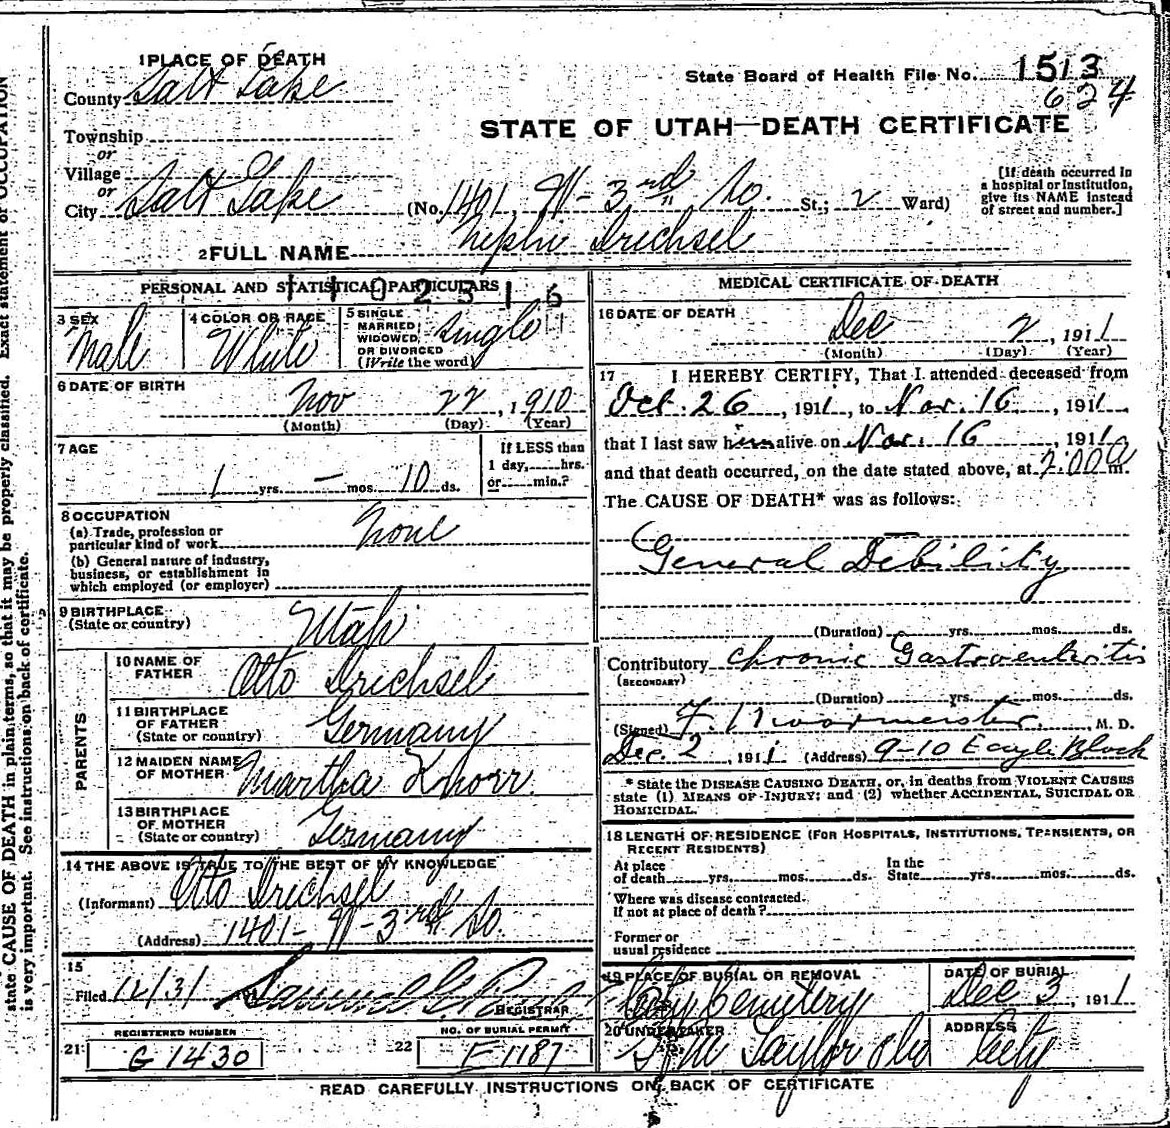 1 PLACE OF DEATH
County Salt Lake
State Board of Health File No. 1513
624
Township
or
Village
or
City Salt Lake
STATE OF UTAH—DEATH CERTIFICATE
(No. 1401, W - 3rd So. St.; 2 Ward)
[If death occurred in
a hospital or institution,
give its NAME instead
of street and number.]
2 FULL NAME Nephi Drechsel
PERSONAL AND STATISTICAL PARTICULARS
3 SEX
Male
4 COLOR OR RACE
White
5 SINGLE
MARRIED
WIDOWED,
OR DIVORCED
(Write the word)
Single
6 DATE OF BIRTH
Nov 22, 1910
(Month) (Day) (Year)
7 AGE
1 yrs. — mos. 10 ds.
If LESS than
1 day, hrs.
or min.?
8 OCCUPATION
(a) Trade, profession or
particular kind of work None
(b) General nature of industry,
business, or establishment in
which employed (or employer)
9 BIRTHPLACE
(State or country)
Utah
PARENTS
10 NAME OF
FATHER
Otto Drechsel
11 BIRTHPLACE
OF FATHER
(State or country)
Germany
12 MAIDEN NAME
OF MOTHER
Martha Knorr.
13 BIRTHPLACE
OF MOTHER
(State or country)
Germany
14 THE ABOVE IS TRUE TO THE BEST OF MY KNOWLEDGE
(Informant) Otto Drechsel
(Address) 1401 - W - 3rd So.
15
Filed 12/31
REGISTRAR
REGISTERED NUMBER
21: G 1430
NO. OF BURIAL PERMIT
22 E 1187
MEDICAL CERTIFICATE OF DEATH
16 DATE OF DEATH
Dec 2, 1911
(Month) (Day) (Year)
17 I HEREBY CERTIFY, That I attended deceased from
Oct. 26, 1911, to Nov. 16, 1911.
that I last saw him alive on Nov. 16, 1911,
and that death occurred, on the date stated above, at 2:00 a m.
The CAUSE OF DEATH* was as follows:
General Debility
(Duration) yrs. mos. ds.
Contributory Chronic Gastroenteritis
(SECONDARY)
(Duration) yrs. mos. ds.
(Signed) M. D.
Dec. 2, 1911 (Address) 9-10 Eagle Block
* State the DISEASE CAUSING DEATH, or, in deaths from VIOLENT CAUSES
state (1) MEANS OF INJURY; and (2) whether ACCIDENTAL, SUICIDAL OR
HOMICIDAL.
18 LENGTH OF RESIDENCE (FOR HOSPITALS, INSTITUTIONS, TRANSIENTS, OR
RECENT RESIDENTS)
At place
of death yrs. mos. ds.
In the
State yrs. mos. ds.
Where was disease contracted.
If not at place of death?
Former or
usual residence
19 PLACE OF BURIAL OR REMOVAL
City Cemetery
DATE OF BURIAL
Dec 3, 1911
20 UNDERTAKER
Taylor
ADDRESS
City
READ CAREFULLY INSTRUCTIONS ON BACK OF CERTIFICATE
state CAUSE OF DEATH in plain terms, so that it may be properly classified. Exact statement of OCCUPATION
is very important. See instructions on back of certificate.